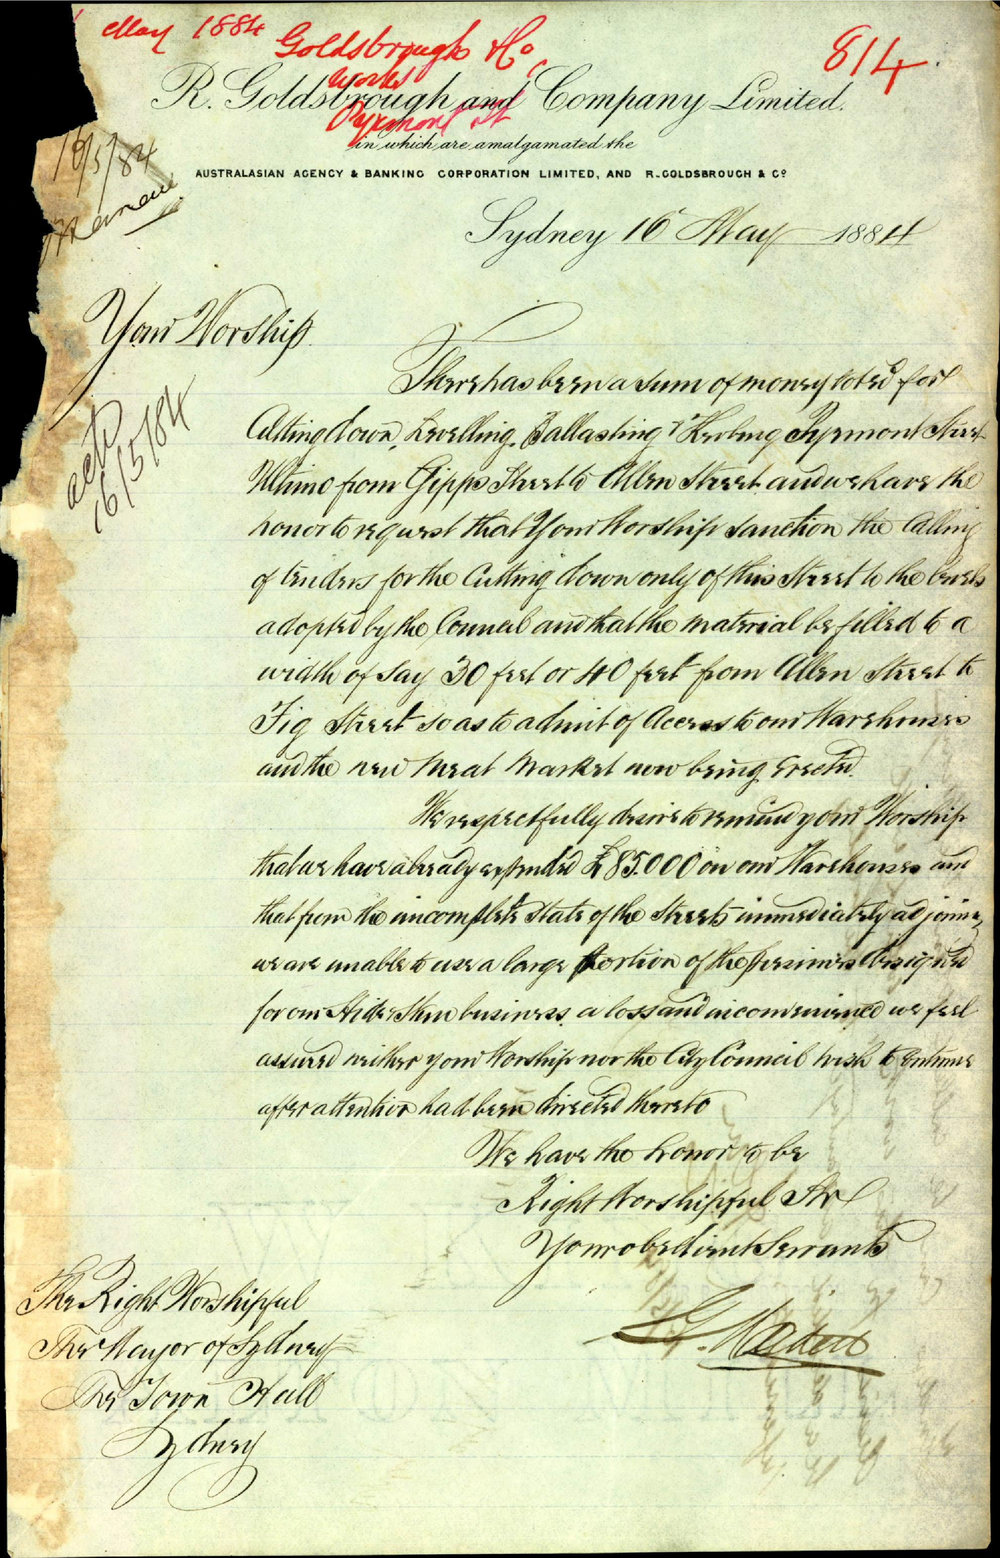 May 1884 Goldsbrough & Co
814
Works
R. Goldsbrough and Company Limited.
Pyrmont St
in which are amalgamated the
AUSTRALASIAN AGENCY & BANKING CORPORATION LIMITED, AND R. GOLDSBROUGH & Cº
16/5/84
Sydney 16 May 1884
Your Worship.
There has been a sum of money voted for
Cutting down, Levelling, Ballasting & Kerbing Pyrmont Street
Ultimo from Gipps Street to Allen Street and we have the
honor to request that Your Worship sanction the Calling
of tenders for the Cutting down only of this Street to the levels
adopted by the Council and that the material be filled to a
width of say 30 feet or 40 feet from Allen Street to
Fig Street so as to admit of Access to our Warehouses
and the new Meat Market now being Erected.
We respectfully desire to remind your Worship
that we have already expended £85.000 on our Warehouses and
that from the incomplete State of the Streets immediately adjoining
we are unable to use a large portion of the premises designed
for our Hide & Skin business, a loss and inconvenience we feel
assured neither your Worship nor the City Council wish to Continue
after attention had been directed thereto
We have the honor to be
Right Worshipful Sir
Your obedient Servants
16/5/84
The Right Worshipful
The Mayor of Sydney
The Town Hall
Sydney